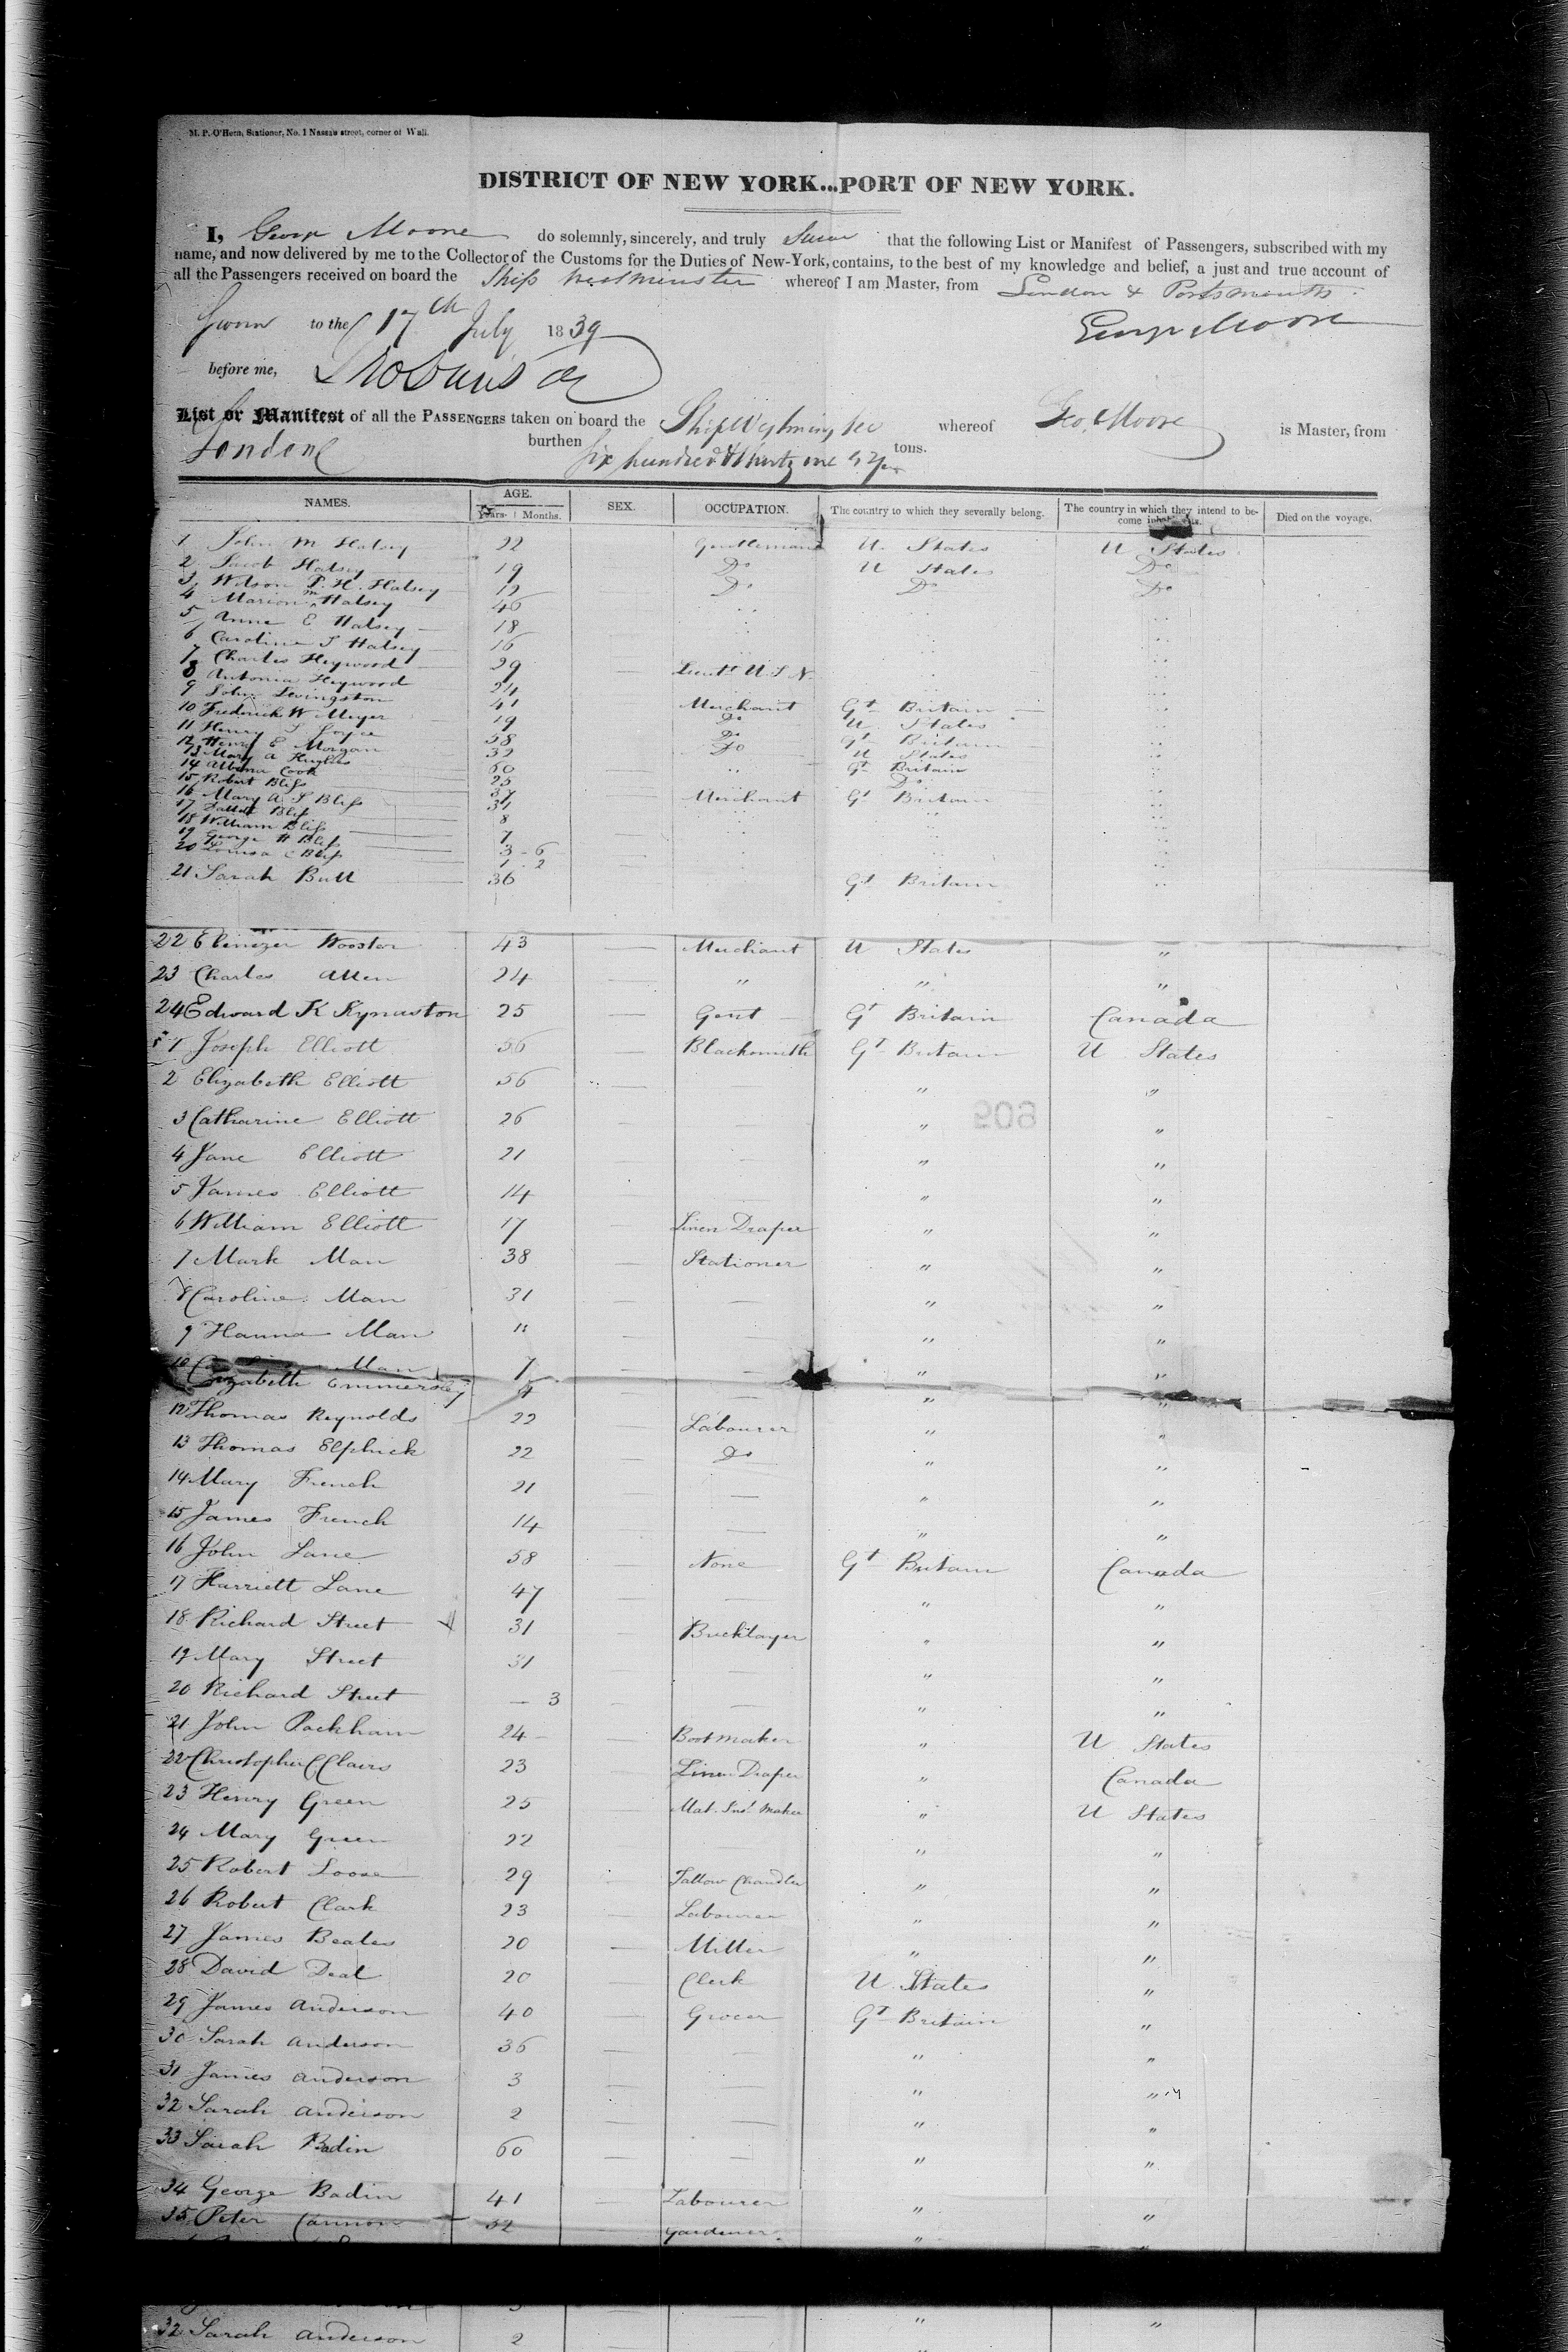 M. P. O'Hern, Stationer, No. 1 Nassau street, corner of Wall.
DISTRICT OF NEW YORK...PORT OF NEW YORK.
I, George Moore do solemnly, sincerely, and truly Swear that the following List or Manifest of Passengers, subscribed with my
name, and now delivered by me to the Collector of the Customs for the Duties of New-York, contains, to the best of my knowledge and belief, a just and true account of
all the Passengers received on board the Ship Westminster whereof I am Master, from London & Portsmouth.
Sworn to the 17th July 1839 George Moore
before me,
List or Manifest of all the PASSENGERS taken on board the Ship Westminster whereof Geo. Moore is Master, from
London burthen Six hundred & thirty one tons.
NAMES. AGE. Years. Months. SEX. OCCUPATION. The country to which they severally belong. The country in which they intend to become inhabitants. Died on the voyage.
1 John M Halsey 22 Gentleman U. States U States
2 Jacob Halsey 19 Do U States Do
3 Wilson P. H. Halsey 12 Do Do Do
4 Marion m Halsey 46
5 Anne E Halsey 18
6 Caroline S Halsey 16
7 Charles Heywood 29 Lieut. U S N
8 Antonia Heywood 24
9 John Levingston 41 Merchant Gt Britain
10 Frederick W Meyer 19 Do U States
11 Henry S Joyce 38 Do Gt Britain
12 Henry E Morgan 32 Do U States
13 Mary A Hughes 60 Gt Britain
14 Albina Cook 25 Do
15 Robert Bliss 37 Merchant Gt Britain
16 Mary A S Bliss 31
17 Bliss 8
18 William Bliss 7
19 George H Bliss 3 - 6
20 Louisa C Bliss 1 - 2
21 Sarah Bull 36 Gt Britain
22 Ebenezer Wooster 43 Merchant U States "
23 Charles Allen 24 " " "
24 Edward K Kynaston 25 Gent Gt Britain Canada
1 Joseph Elliott 56 Blacksmith Gt Britain U States
2 Elizabeth Elliott 56 " "
609
3 Catharine Elliott 26 " "
4 Jane Elliott 21 " "
5 James Elliott 14 " "
6 William Elliott 17 Linen Draper " "
7 Mark Man 38 Stationer " "
8 Caroline Man 31 " "
9 Hanna Man 11 " "
10 Man 7 " "
Elizabeth Emmersley 4 " "
12 Thomas Reynolds 22 Labourer " "
13 Thomas Elphick 22 Do " "
14 Mary French 21 " "
15 James French 14 " "
16 John Lane 58 None Gt Britain Canada
17 Harriett Lane 47 " "
18 Richard Street 31 Bricklayer " "
19 Mary Street 31 " "
20 Richard Street — 3 " "
21 John Packham 24 Bootmaker " U States
22 Christopher C Clairs 23 Linen Draper " Canada
23 Henry Green 25 Mat. Inst. Maker " U States
24 Mary Green 22 " "
25 Robert Loose 29 Tallow Chandler " "
26 Robert Clark 23 Labourer " "
27 James Beales 20 Miller " "
28 David Deal 20 Clerk U. States "
29 James Anderson 40 Grocer Gt Britain "
30 Sarah Anderson 36 " "
31 James Anderson 3 " "
32 Sarah Anderson 2 " "
33 Sarah Badin 60 " "
34 George Badin 41 Labourer " "
35 Peter Cannon 32 Gardener " "
32 Sarah Anderson 2 "